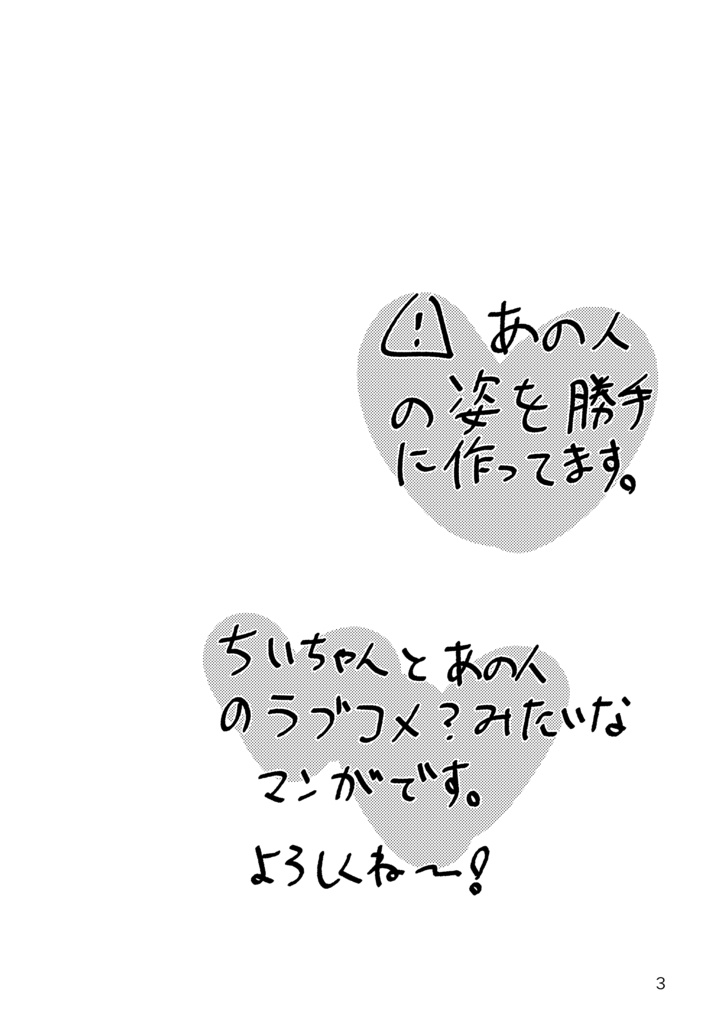 ⚠ あの人
の姿を勝手
に作ってます。
ちいちゃんとあの人
のラブコメ?みたいな
マンガです。
よろしくね〜!
3